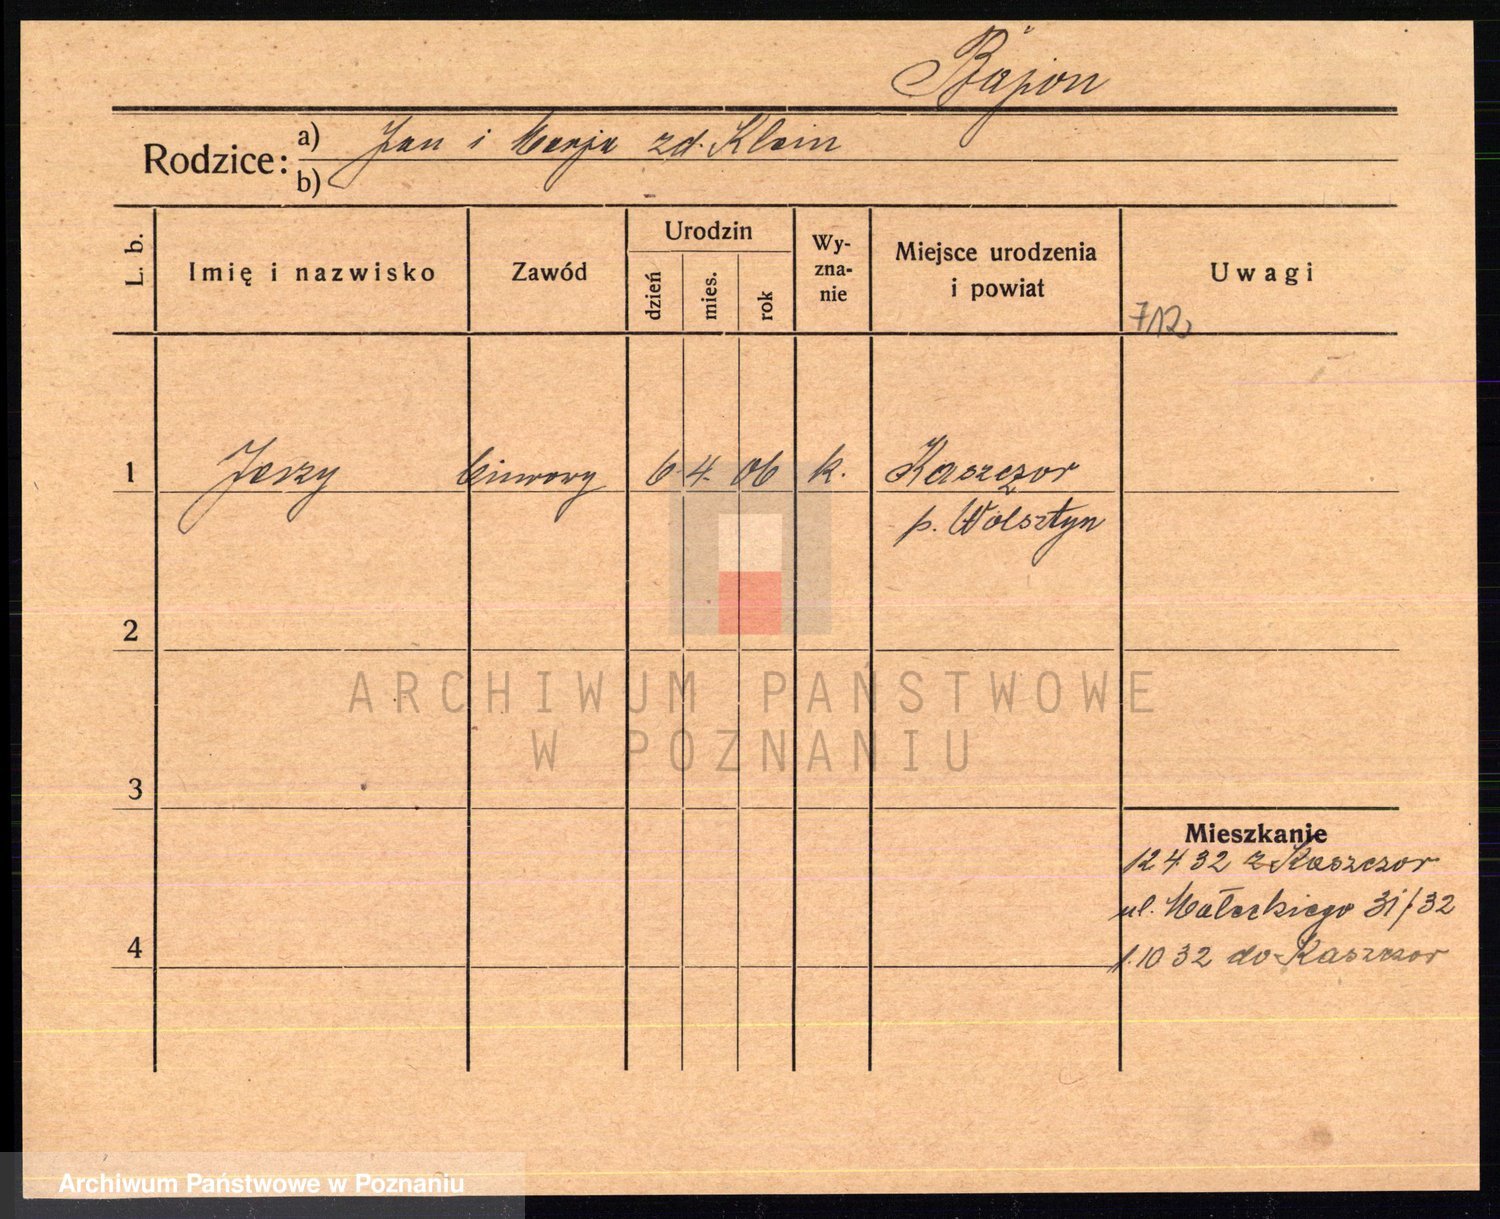 Bajon
Rodzice: a) Jan i Marja zd. Klein
b)
L. b.
Imię i nazwisko
Zawód
Urodzin
dzień
mies.
rok
Wy-
zna-
nie
Miejsce urodzenia
i powiat
Uwagi
712
1 Jerzy 6 4. 06 k. Kaszczor
p. Wolsztyn
2
3
4
ARCHIWUM PAŃSTWOWE
W POZNANIU
Mieszkanie
12 4 32 z Kaszczor
ul. Małeckiego 31/32
1.10 32 do Kaszczor
Archiwum Państwowe w Poznaniu